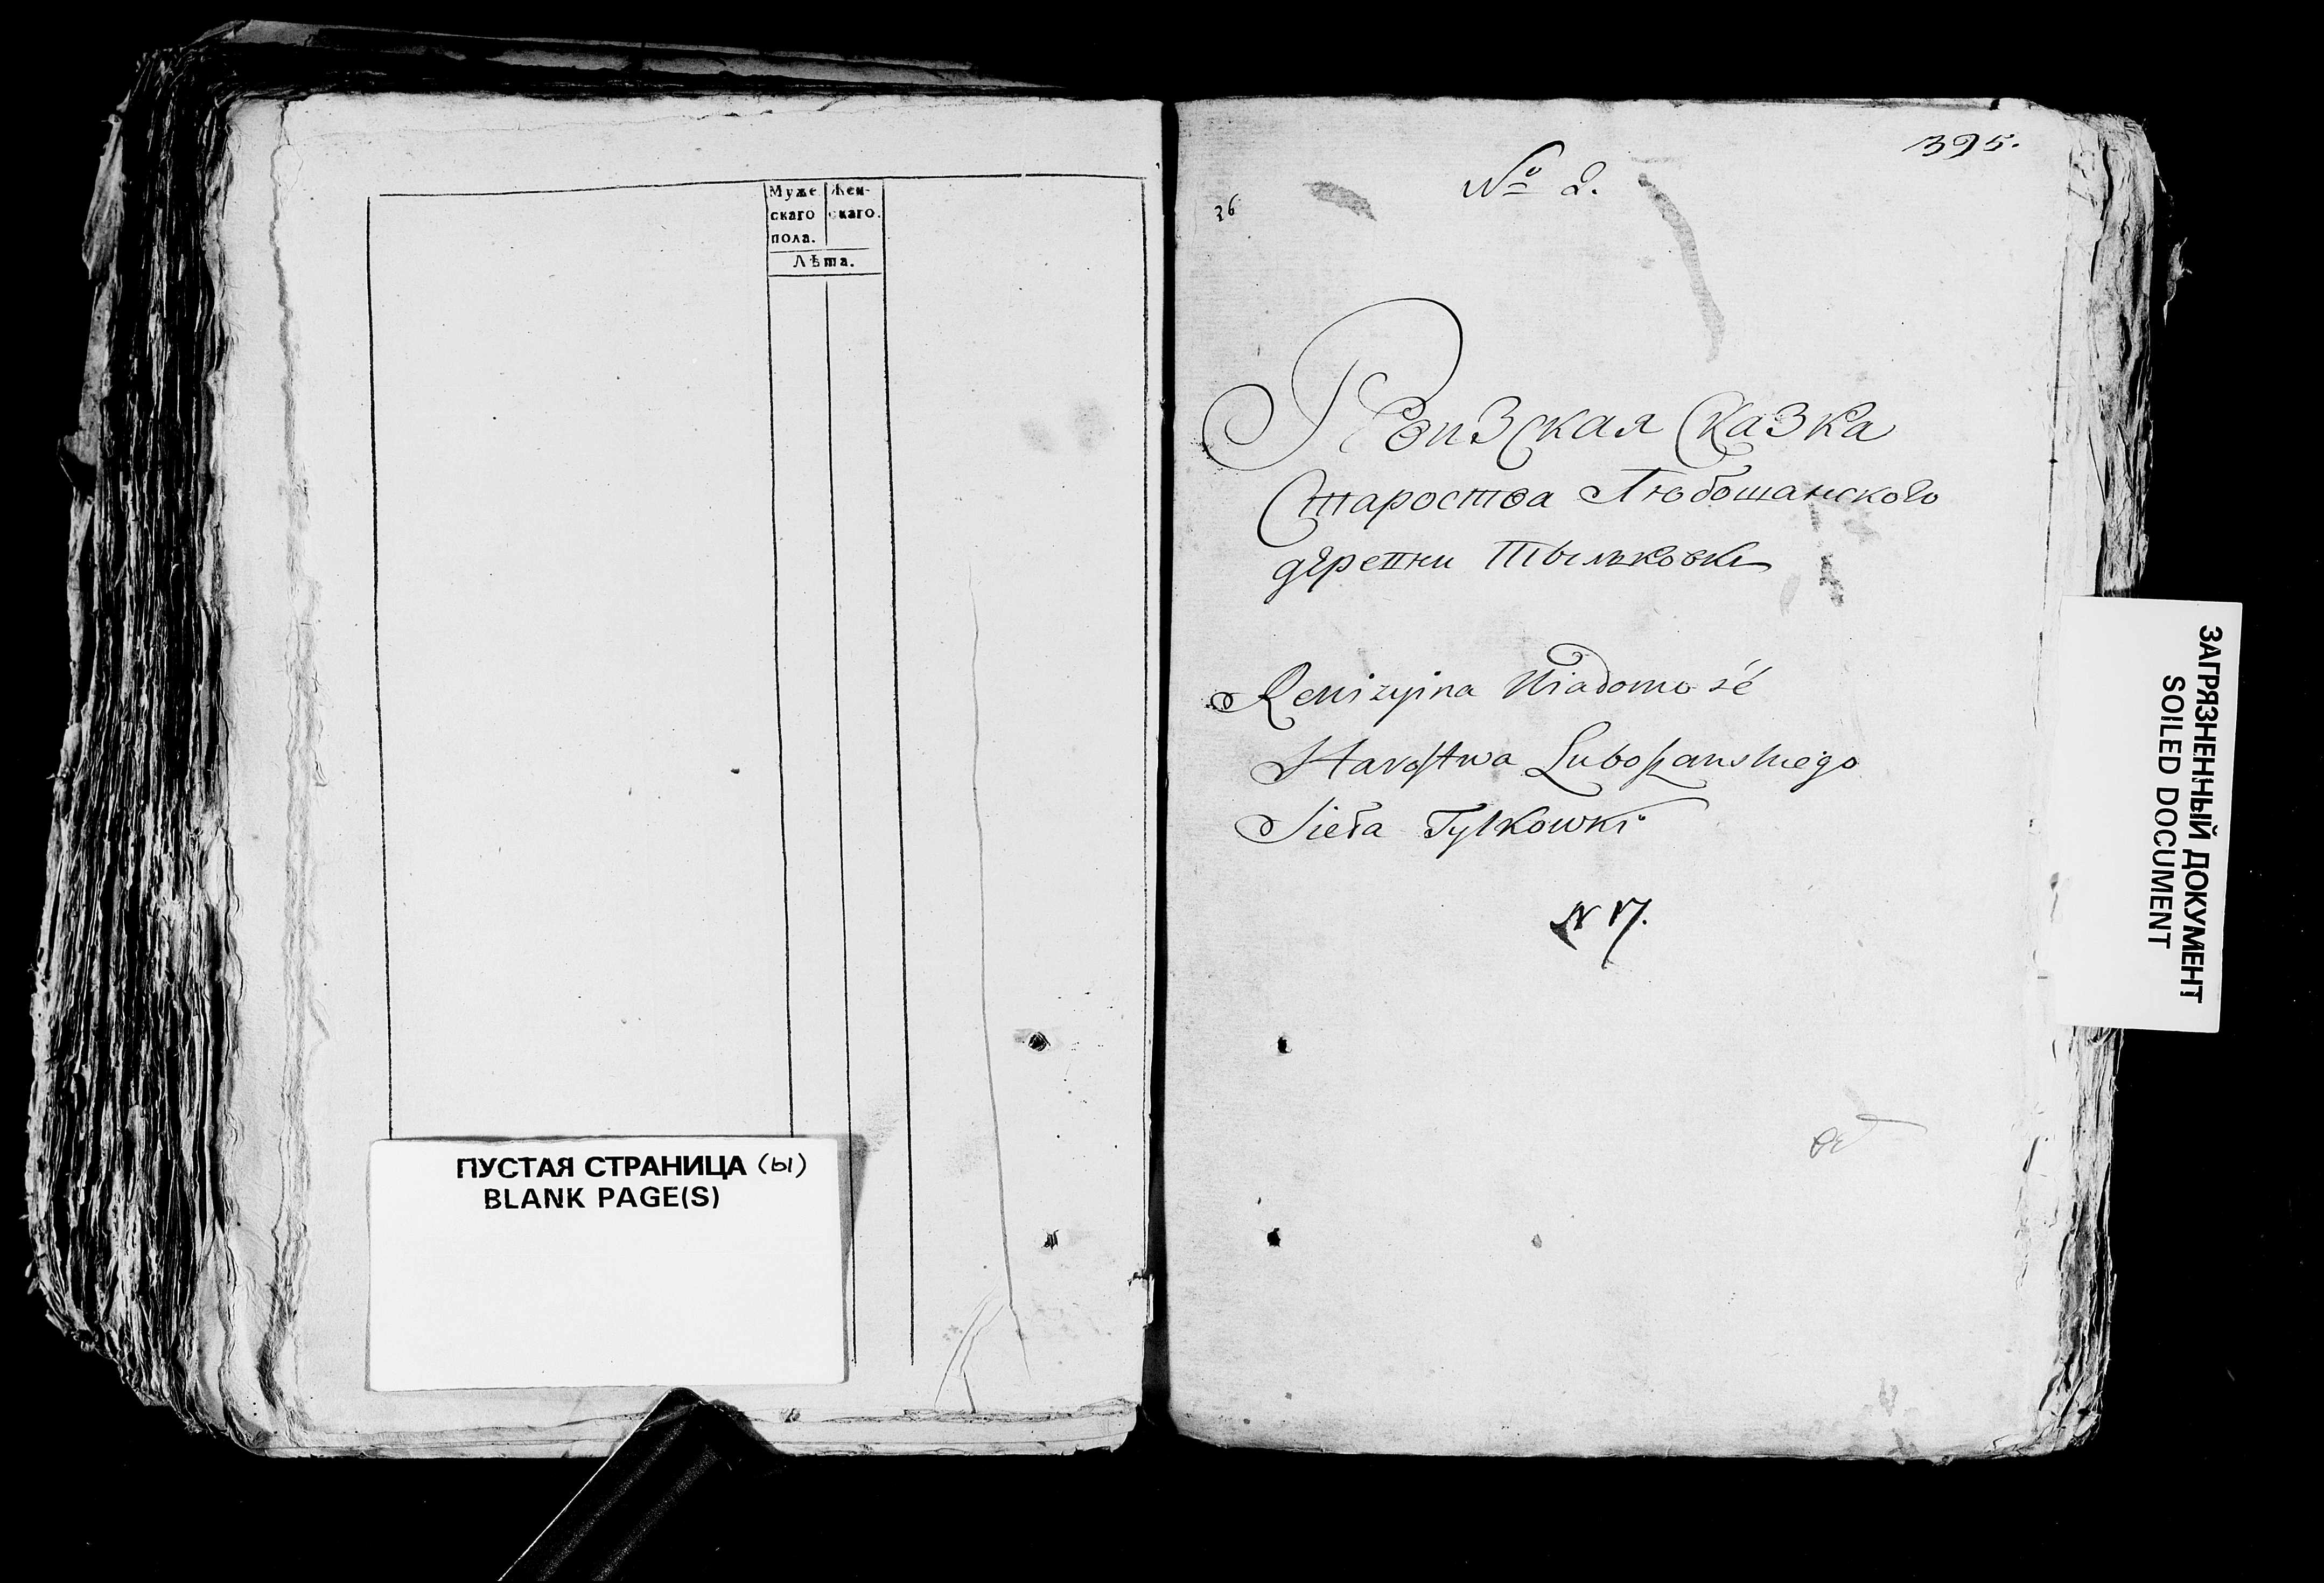 Муже Жен-
скаго скаго.
пола.
Лѣта.
ПУСТАЯ СТРАНИЦА (ы)
BLANK PAGE(S)
395.
№ 2.
36
Ревизская Сказка
Староства Любошанского
деревни Тыльковки
Rewizyina Wiadomość
Starostwa Luboszanskiego
Sieła Tylkowki
N 17.
ЗАГРЯЗНЕННЫЙ ДОКУМЕНТ
SOILED DOCUMENT